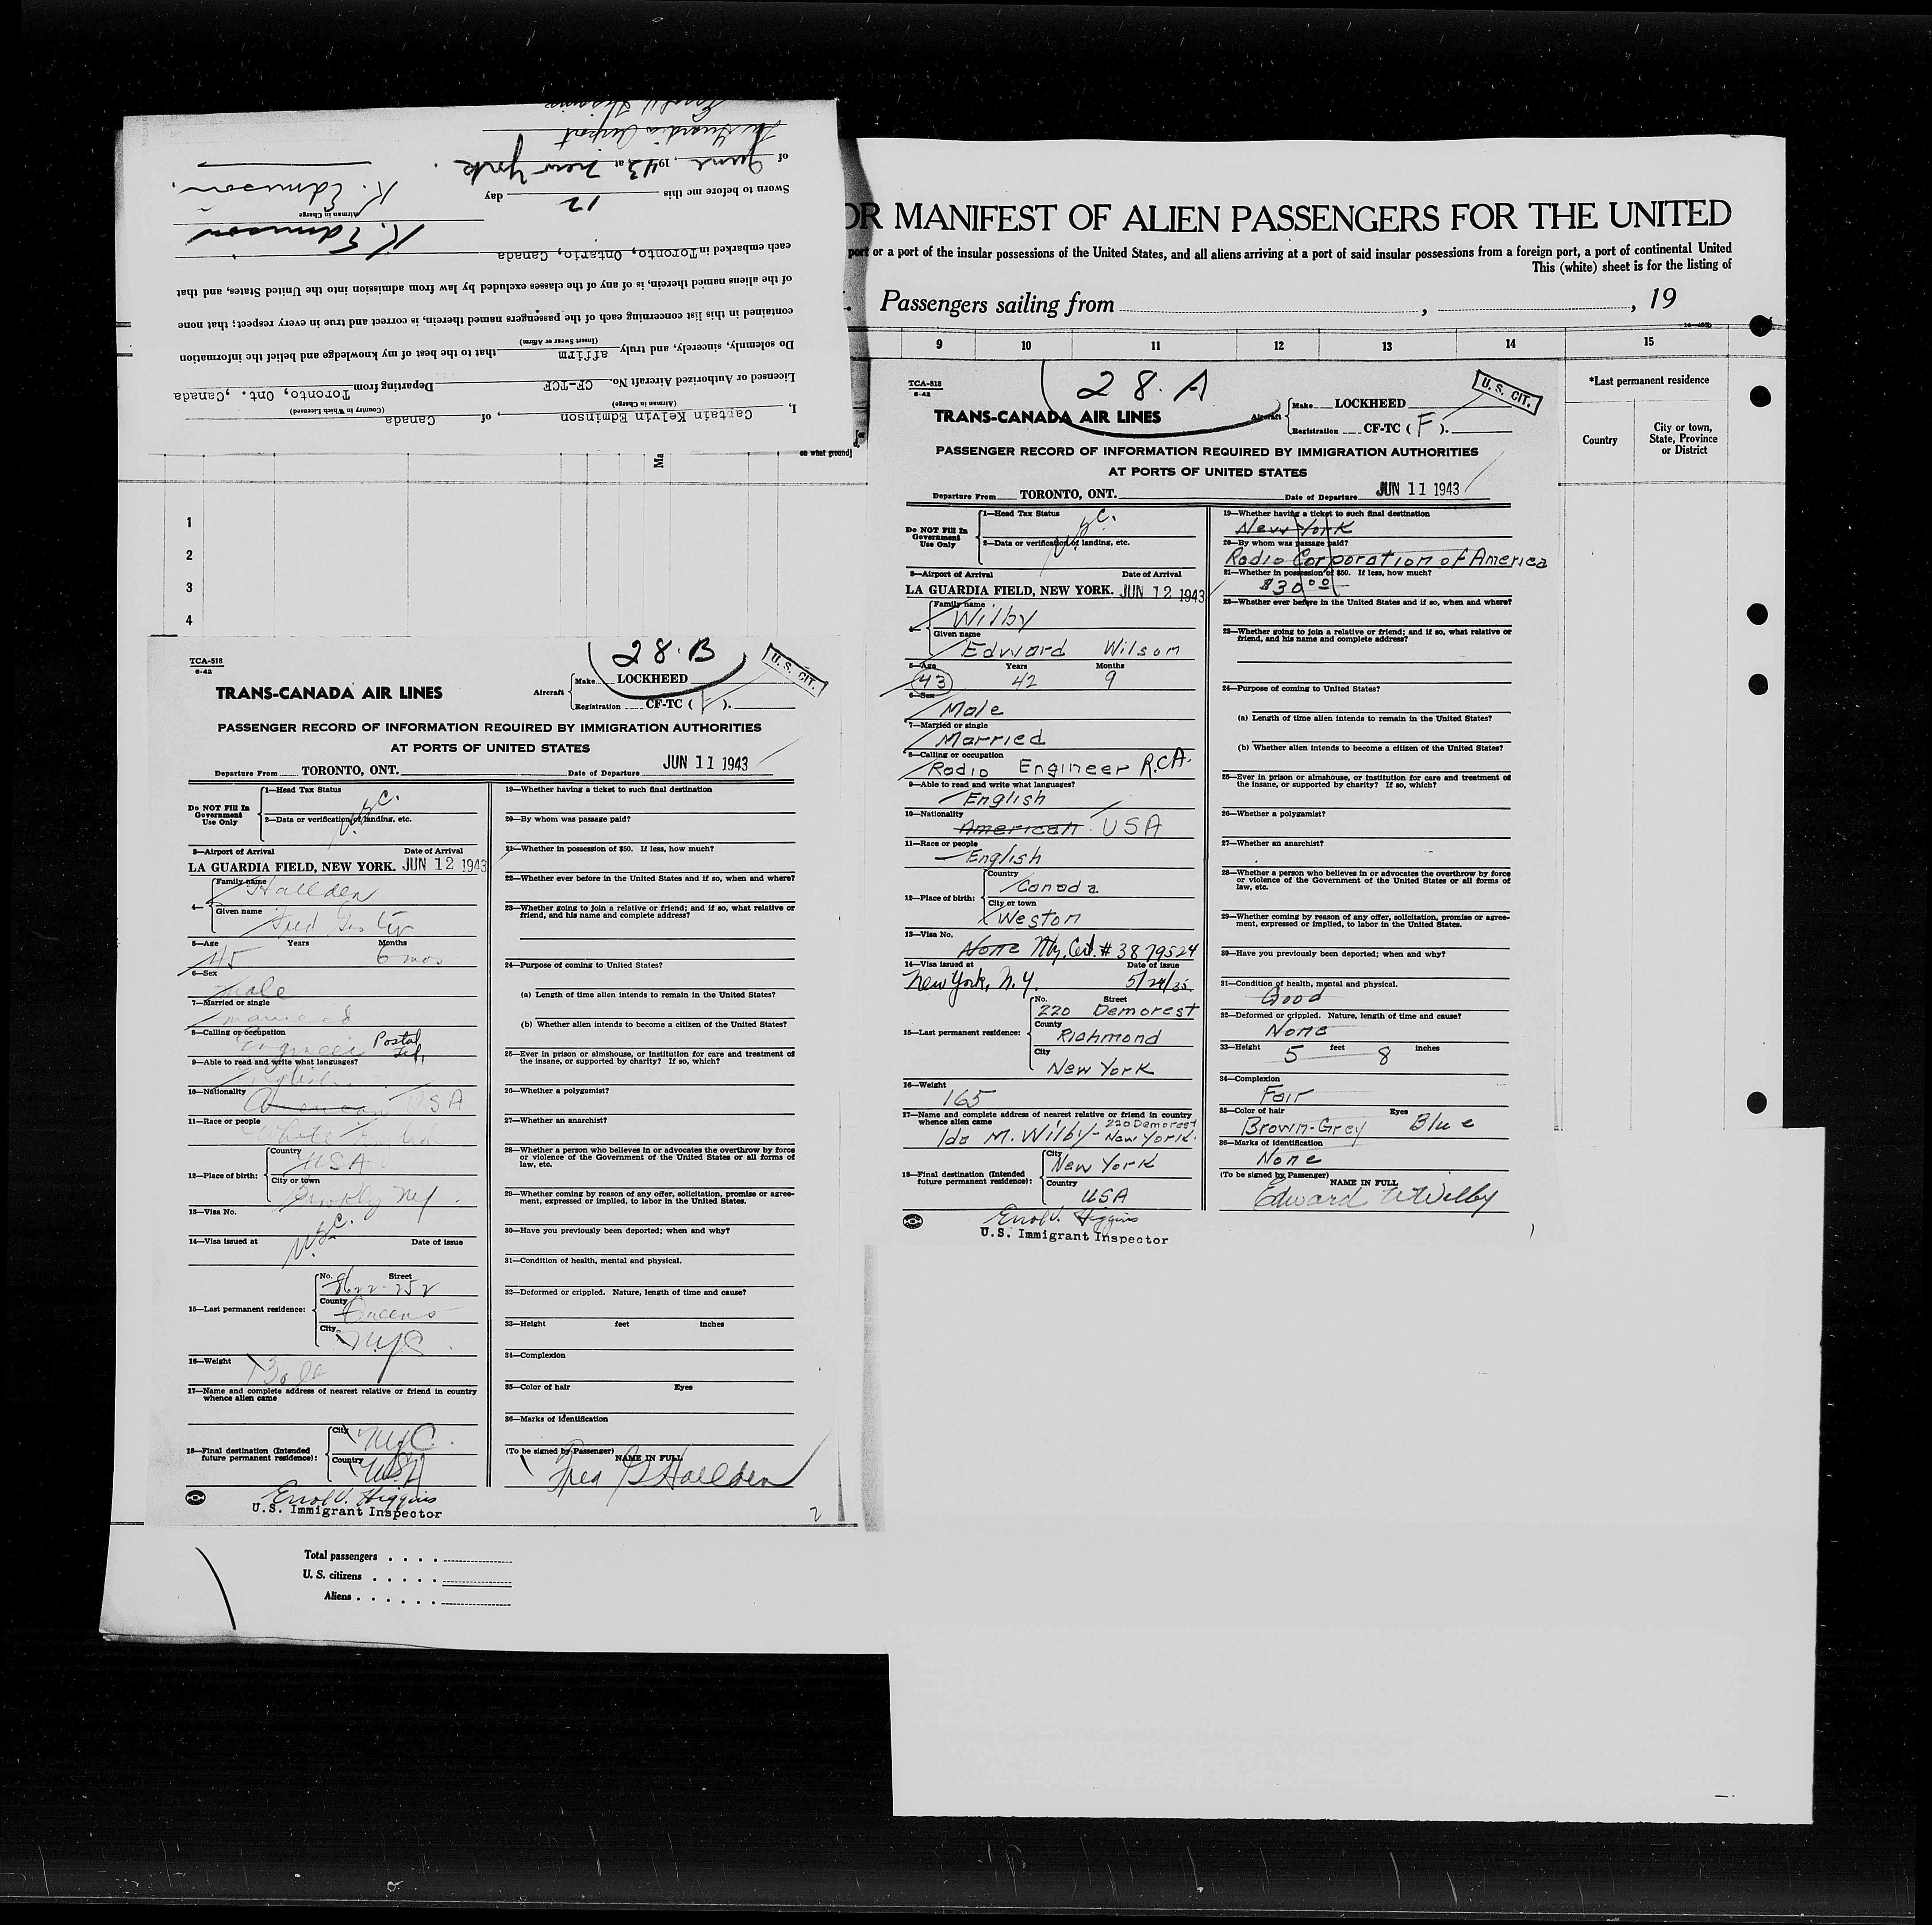 I, Captain Kelvin Edminson, of Canada
(Airman in Charge) (Country in Which Licensed)
Licensed or Authorized Aircraft No. CF-TCF Departing from Toronto, Ont., Canada
Do solemnly, sincerely, and truly affirm that to the best of my knowledge and belief the information
(Insert Swear or Affirm)
contained in this list concerning each of the passengers named therein, is correct and true in every respect; that none
of the aliens named therein, is of any of the classes excluded by law from admission into the United States, and that
each embarked in Toronto, Ontario, Canada
K. Edmison
Airman in Charge
K. Edmison
Sworn to before me this 12 day
of June, 1943, at New York
La Guardia Airport
Errol V. Higgins
on what ground]
Ma
1
2
3
4
28.B
U.S. CIT.
TCA-518
6-42
TRANS-CANADA AIR LINES
Aircraft
Make LOCKHEED
Registration CF-TC (F).
PASSENGER RECORD OF INFORMATION REQUIRED BY IMMIGRATION AUTHORITIES
AT PORTS OF UNITED STATES
Departure From TORONTO, ONT. Date of Departure JUN 11 1943
Do NOT Fill In
Government
Use Only
1—Head Tax Status
U.S.C.
2—Data or verification of landing, etc.
3—Airport of Arrival Date of Arrival
LA GUARDIA FIELD, NEW YORK. JUN 12 1943
4—
Family name
Hallden
Given name
Fred
5—Age Years Months
45 6 mos
6—Sex
Male
7—Married or single
married
8—Calling or occupation
Engineer Postal Tel.
9—Able to read and write what languages?
English
10—Nationality
American USA
11—Race or people
White
12—Place of birth:
Country
USA
City or town
Brooklyn NY.
13—Visa No.
U.S.C.
14—Visa issued at Date of issue
15—Last permanent residence:
No. Street
8622-252
County
Queens
City
NYC
16—Weight
130
17—Name and complete address of nearest relative or friend in country
whence alien came
18—Final destination (Intended
future permanent residence):
City
NYC.
Country
USA
Errol V. Higgins
U.S. Immigrant Inspector
19—Whether having a ticket to such final destination
20—By whom was passage paid?
21—Whether in possession of $50. If less, how much?
22—Whether ever before in the United States and if so, when and where?
23—Whether going to join a relative or friend; and if so, what relative or
friend, and his name and complete address?
24—Purpose of coming to United States?
(a) Length of time alien intends to remain in the United States?
(b) Whether alien intends to become a citizen of the United States?
25—Ever in prison or almshouse, or institution for care and treatment of
the insane, or supported by charity? If so, which?
26—Whether a polygamist?
27—Whether an anarchist?
28—Whether a person who believes in or advocates the overthrow by force
or violence of the Government of the United States or all forms of
law, etc.
29—Whether coming by reason of any offer, solicitation, promise or agree-
ment, expressed or implied, to labor in the United States.
30—Have you previously been deported; when and why?
31—Condition of health, mental and physical.
32—Deformed or crippled. Nature, length of time and cause?
33—Height feet inches
34—Complexion
35—Color of hair Eyes
36—Marks of identification
(To be signed by Passenger)
NAME IN FULL
Fred G Hallden
2
Total passengers
U. S. citizens
Aliens
OR MANIFEST OF ALIEN PASSENGERS FOR THE UNITED
port or a port of the insular possessions of the United States, and all aliens arriving at a port of said insular possessions from a foreign port, a port of continental United
This (white) sheet is for the listing of
Passengers sailing from , , 19
9 10 11 12 13 14 15
*Last permanent residence
Country
City or town,
State, Province
or District
28.A
U.S. CIT.
TCA-518
6-42
TRANS-CANADA AIR LINES
Aircraft
Make LOCKHEED
Registration CF-TC (F).
PASSENGER RECORD OF INFORMATION REQUIRED BY IMMIGRATION AUTHORITIES
AT PORTS OF UNITED STATES
Departure From TORONTO, ONT. Date of Departure JUN 11 1943
Do NOT Fill In
Government
Use Only
1—Head Tax Status
U.S.C.
2—Data or verification of landing, etc.
3—Airport of Arrival Date of Arrival
LA GUARDIA FIELD, NEW YORK. JUN 12 1943
4—
Family name
Wilby
Given name
Edward Wilson
5—Age Years Months
43 42 9
6—Sex
Male
7—Married or single
Married
8—Calling or occupation
Radio Engineer R.C.A.
9—Able to read and write what languages?
English
10—Nationality
American USA
11—Race or people
English
12—Place of birth:
Country
Canada
City or town
Weston
13—Visa No.
None Ntz. Cert. # 3879524
14—Visa issued at Date of issue
New York, N.Y. 5/24/35
15—Last permanent residence:
No. Street
220 Demorest
County
Richmond
City
New York
16—Weight
165
17—Name and complete address of nearest relative or friend in country
whence alien came
220 Demorest
Ida M. Wilby - New York.
18—Final destination (Intended
future permanent residence):
City
New York
Country
USA
Errol V. Higgins
U.S. Immigrant Inspector
19—Whether having a ticket to such final destination
New York
20—By whom was passage paid?
Radio Corporation of America
21—Whether in possession of $50. If less, how much?
$30.00
22—Whether ever before in the United States and if so, when and where?
23—Whether going to join a relative or friend; and if so, what relative or
friend, and his name and complete address?
24—Purpose of coming to United States?
(a) Length of time alien intends to remain in the United States?
(b) Whether alien intends to become a citizen of the United States?
25—Ever in prison or almshouse, or institution for care and treatment of
the insane, or supported by charity? If so, which?
26—Whether a polygamist?
27—Whether an anarchist?
28—Whether a person who believes in or advocates the overthrow by force
or violence of the Government of the United States or all forms of
law, etc.
29—Whether coming by reason of any offer, solicitation, promise or agree-
ment, expressed or implied, to labor in the United States.
30—Have you previously been deported; when and why?
31—Condition of health, mental and physical.
Good
32—Deformed or crippled. Nature, length of time and cause?
None
33—Height 5 feet 8 inches
34—Complexion
Fair
35—Color of hair Eyes
Brown-Grey Blue
36—Marks of identification
None
(To be signed by Passenger)
NAME IN FULL
Edward W Wilby